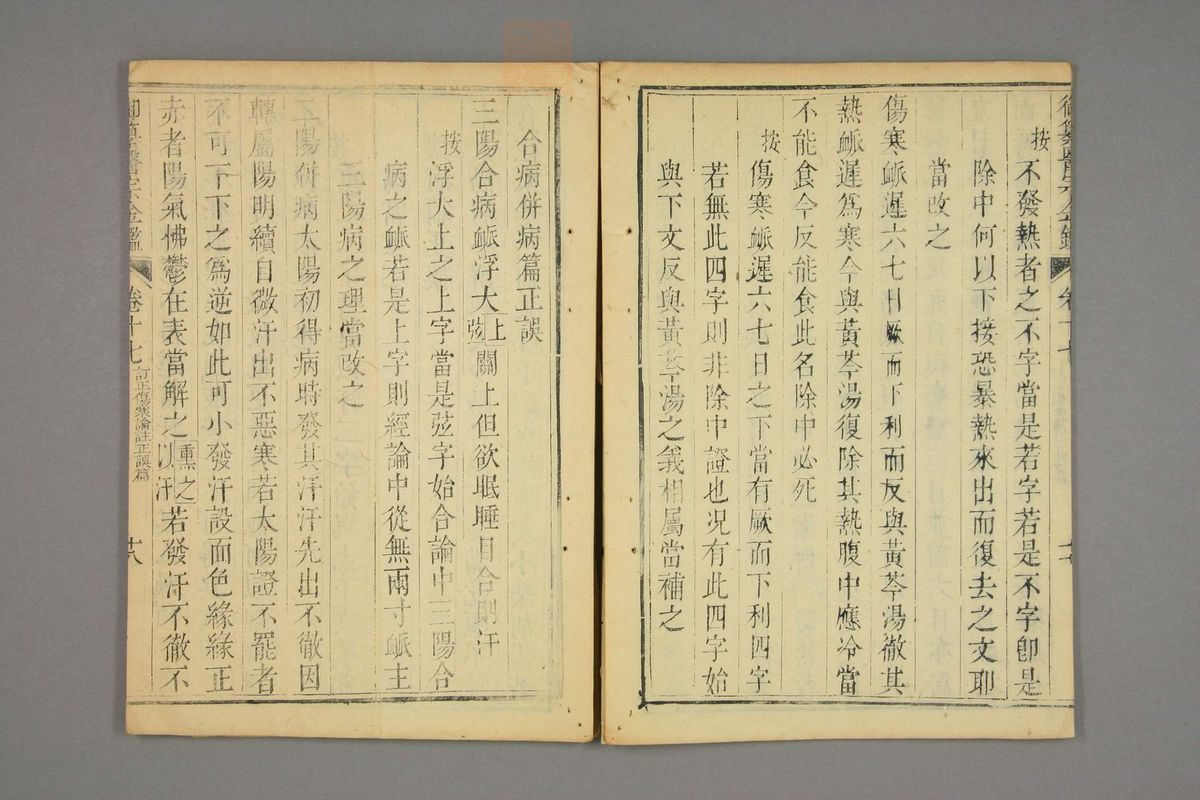 御纂醫宗金鑑 卷十七 十七
按不發熱者之不字當是若字若是不字卽是
除中何以下接恐暴熱來出而復去之文耶
當改之
傷寒脈遲六七日厥而下利而反與黃芩湯徹其
熱脈遲爲寒今與黃芩湯復除其熱腹中應冷當
不能食今反能食此名除中必死
按傷寒脈遲六七日之下當有厥而下利四字
若無此四字則非除中證也况有此四字始
與下文反與黃芩湯之義相屬當補之
合病併病篇正誤
三陽合病脈浮大上弦關上但欲眠睡目合則汗
按浮大上之上字當是弦字始合論中三陽合
病之脈若是上字則經論中從無兩寸脈主
三陽病之理當改之
二陽併病太陽初得病時發其汗汗先出不徹因
轉屬陽明續自微汗出不惡寒若太陽證不罷者
不可下下之爲逆如此可小發汗設面色緣緣正
赤者陽氣怫鬱在表當解之熏之以汗若發汗不徹不
御纂醫宗金鑑 卷十七 訂正傷寒論註正誤篇 十八